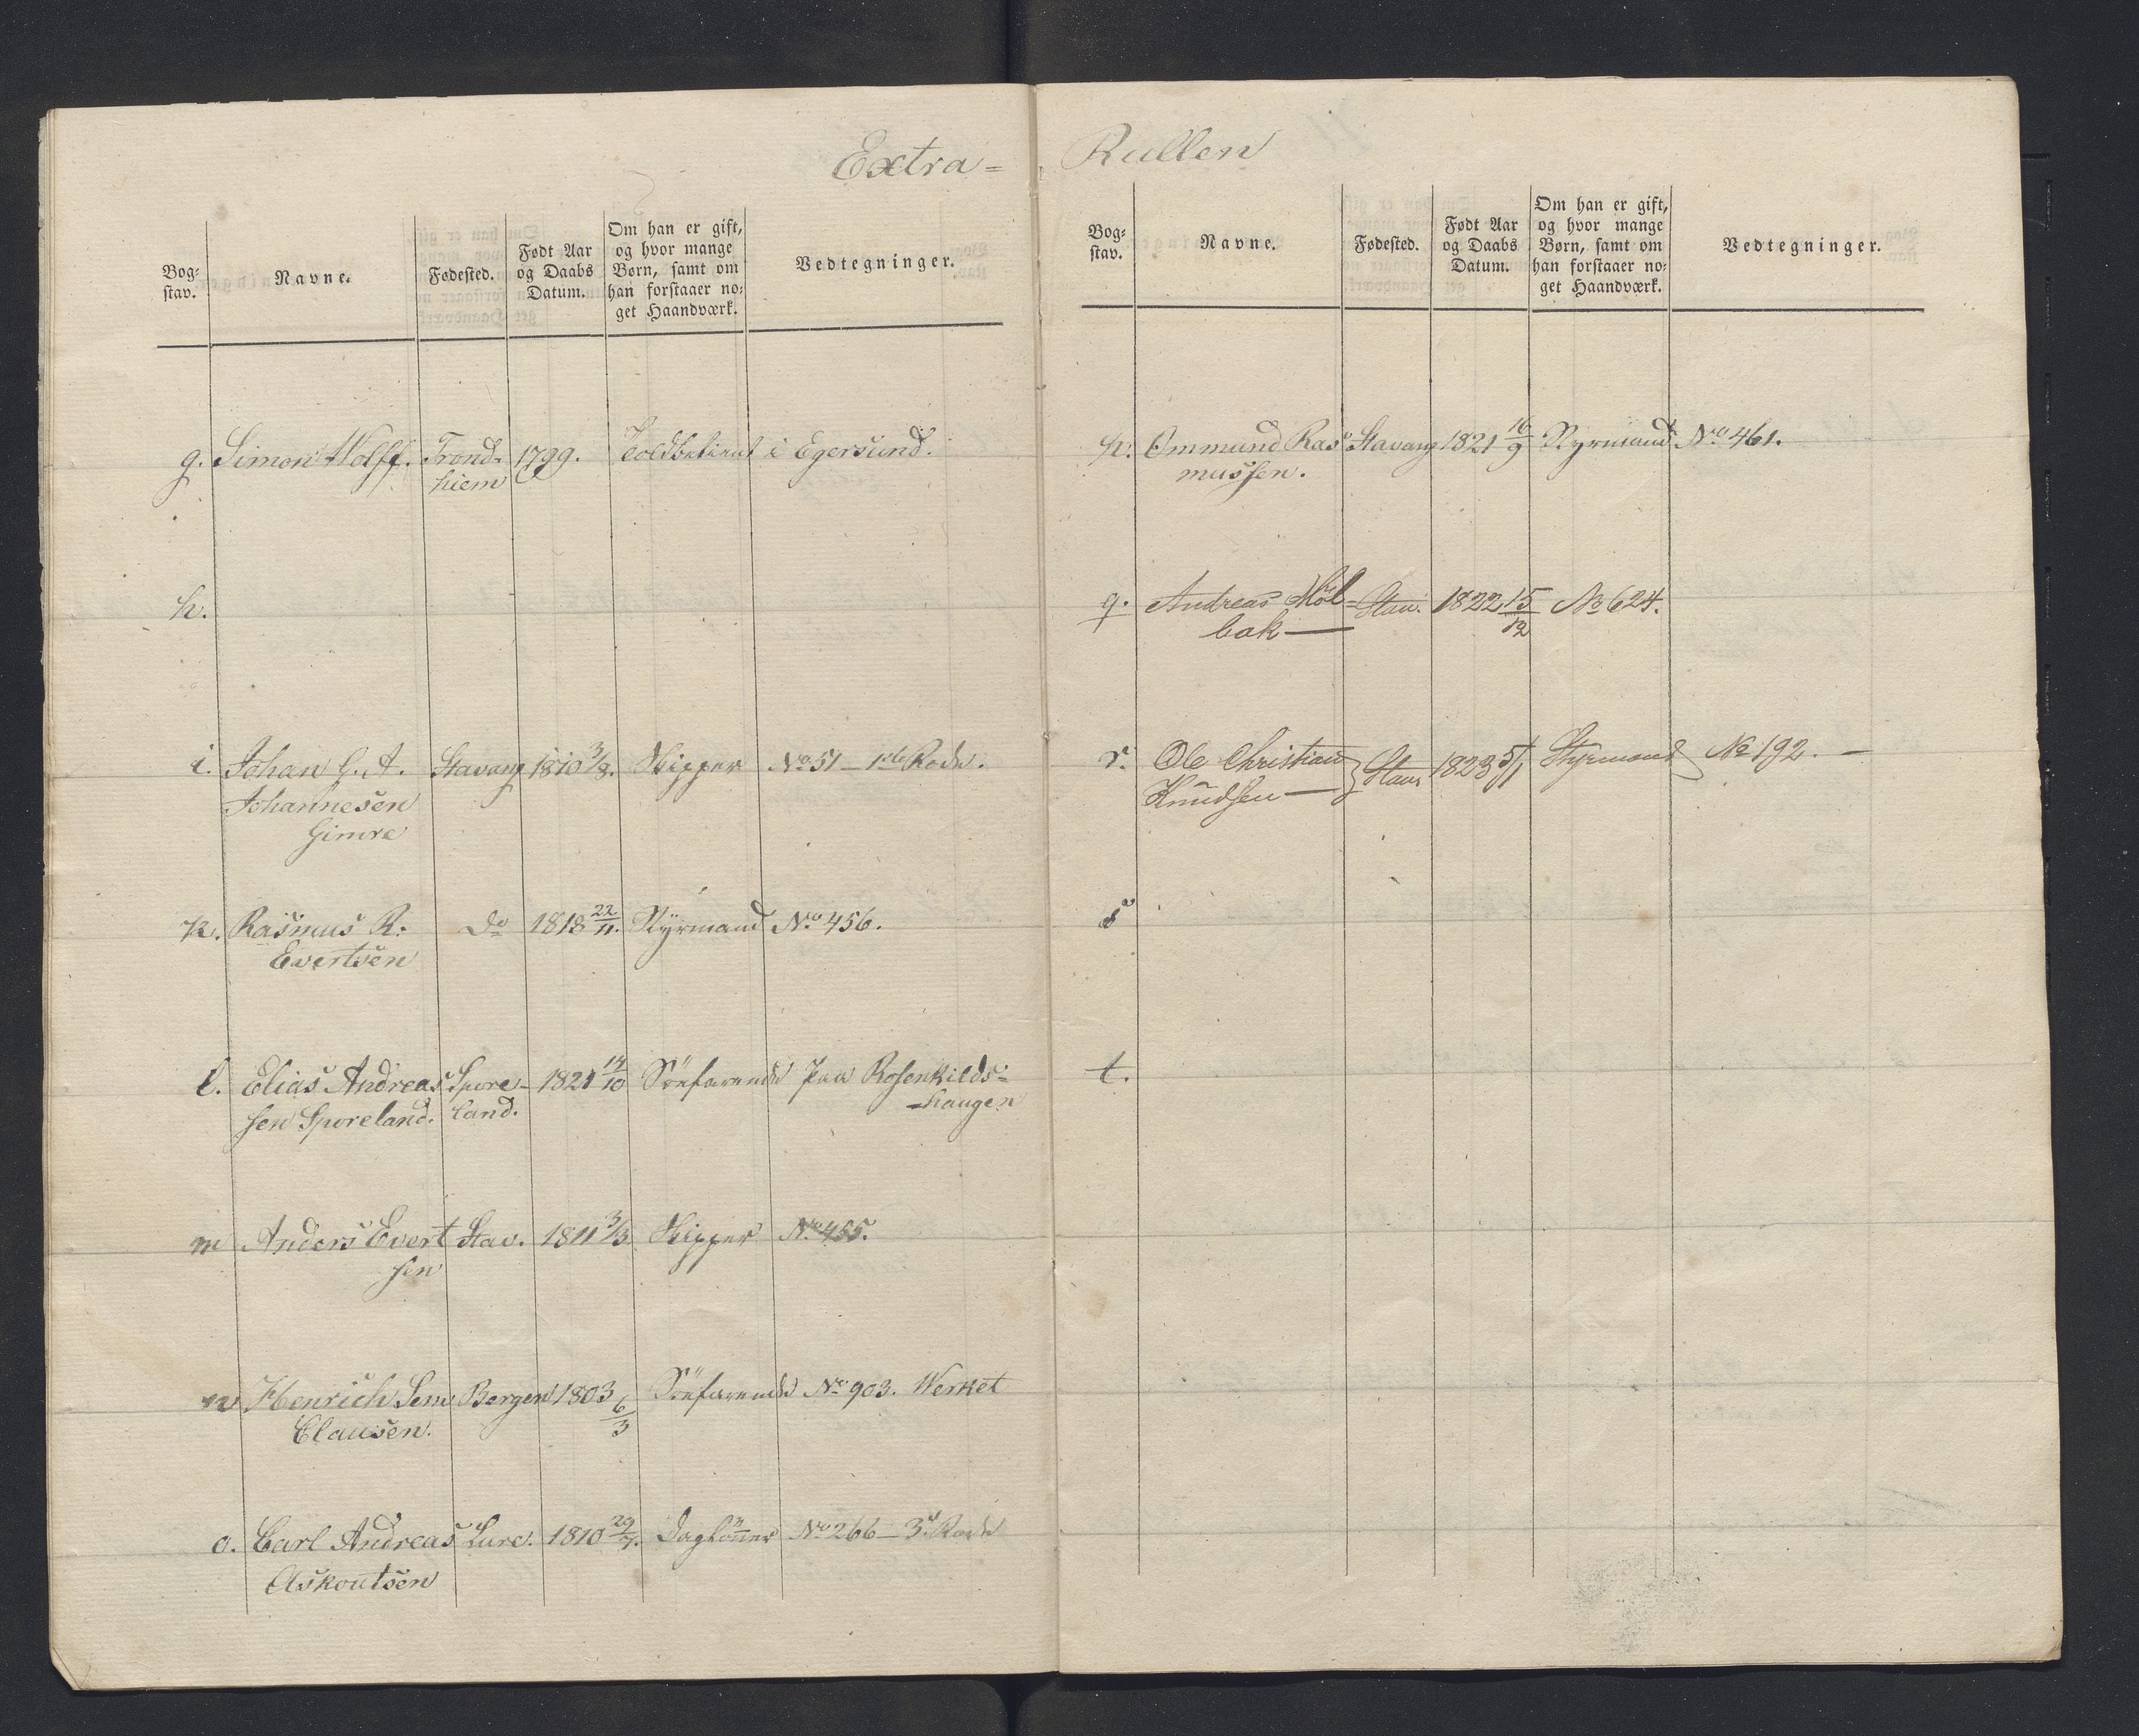 Extra= Rullen
Bog-
stav.
Navne.
Fødested.
Født Aar
og Daabs
Datum.
Om han er gift,
og hvor mange
Børn, samt om
han forstaaer no-
get Haandværk.
Vedtegninger.
g. Simon Wolff. Trond- 1799. Toldbetient i Egersund.
hiem
h.
i. Johan G. A. Stavang 1810 3/8. Skipper No 51 - 1ste Rode.
Johannesen
Gimre
k. Rasmus R: do 1818 22/11. Styrmand No 456.
Evertsen
l. Elias Andreas Spore- 1821 14/10 Söefarende paa Rosenkilds-
sen Sporeland. land. -haugen
m Anders Evert Stav. 1811 3/3 Skipper No 455.
sen
n Henrich Sem Bergen 1803 6/3 Söefarende No 903. Werket
Clausen.
o. Carl Andreas Lure. 1810 29/7. Daglönner No 266 - 3d Rode
Askoutsen
Bog-
stav.
Navne.
Fødested.
Født Aar
og Daabs
Datum.
Om han er gift,
og hvor mange
Børn, samt om
han forstaaer no-
get Haandværk.
Vedtegninger.
p. Ommund Ras Stavang 1821 16/9 Styrmand No 461.
mussen.
q. Andreas Höl= Stav. 1822 15/12 No 624.
bak —
r. Ole Christian Stav 1823 5/1 Styrmand No 192. —
Knudsen —
s
t.